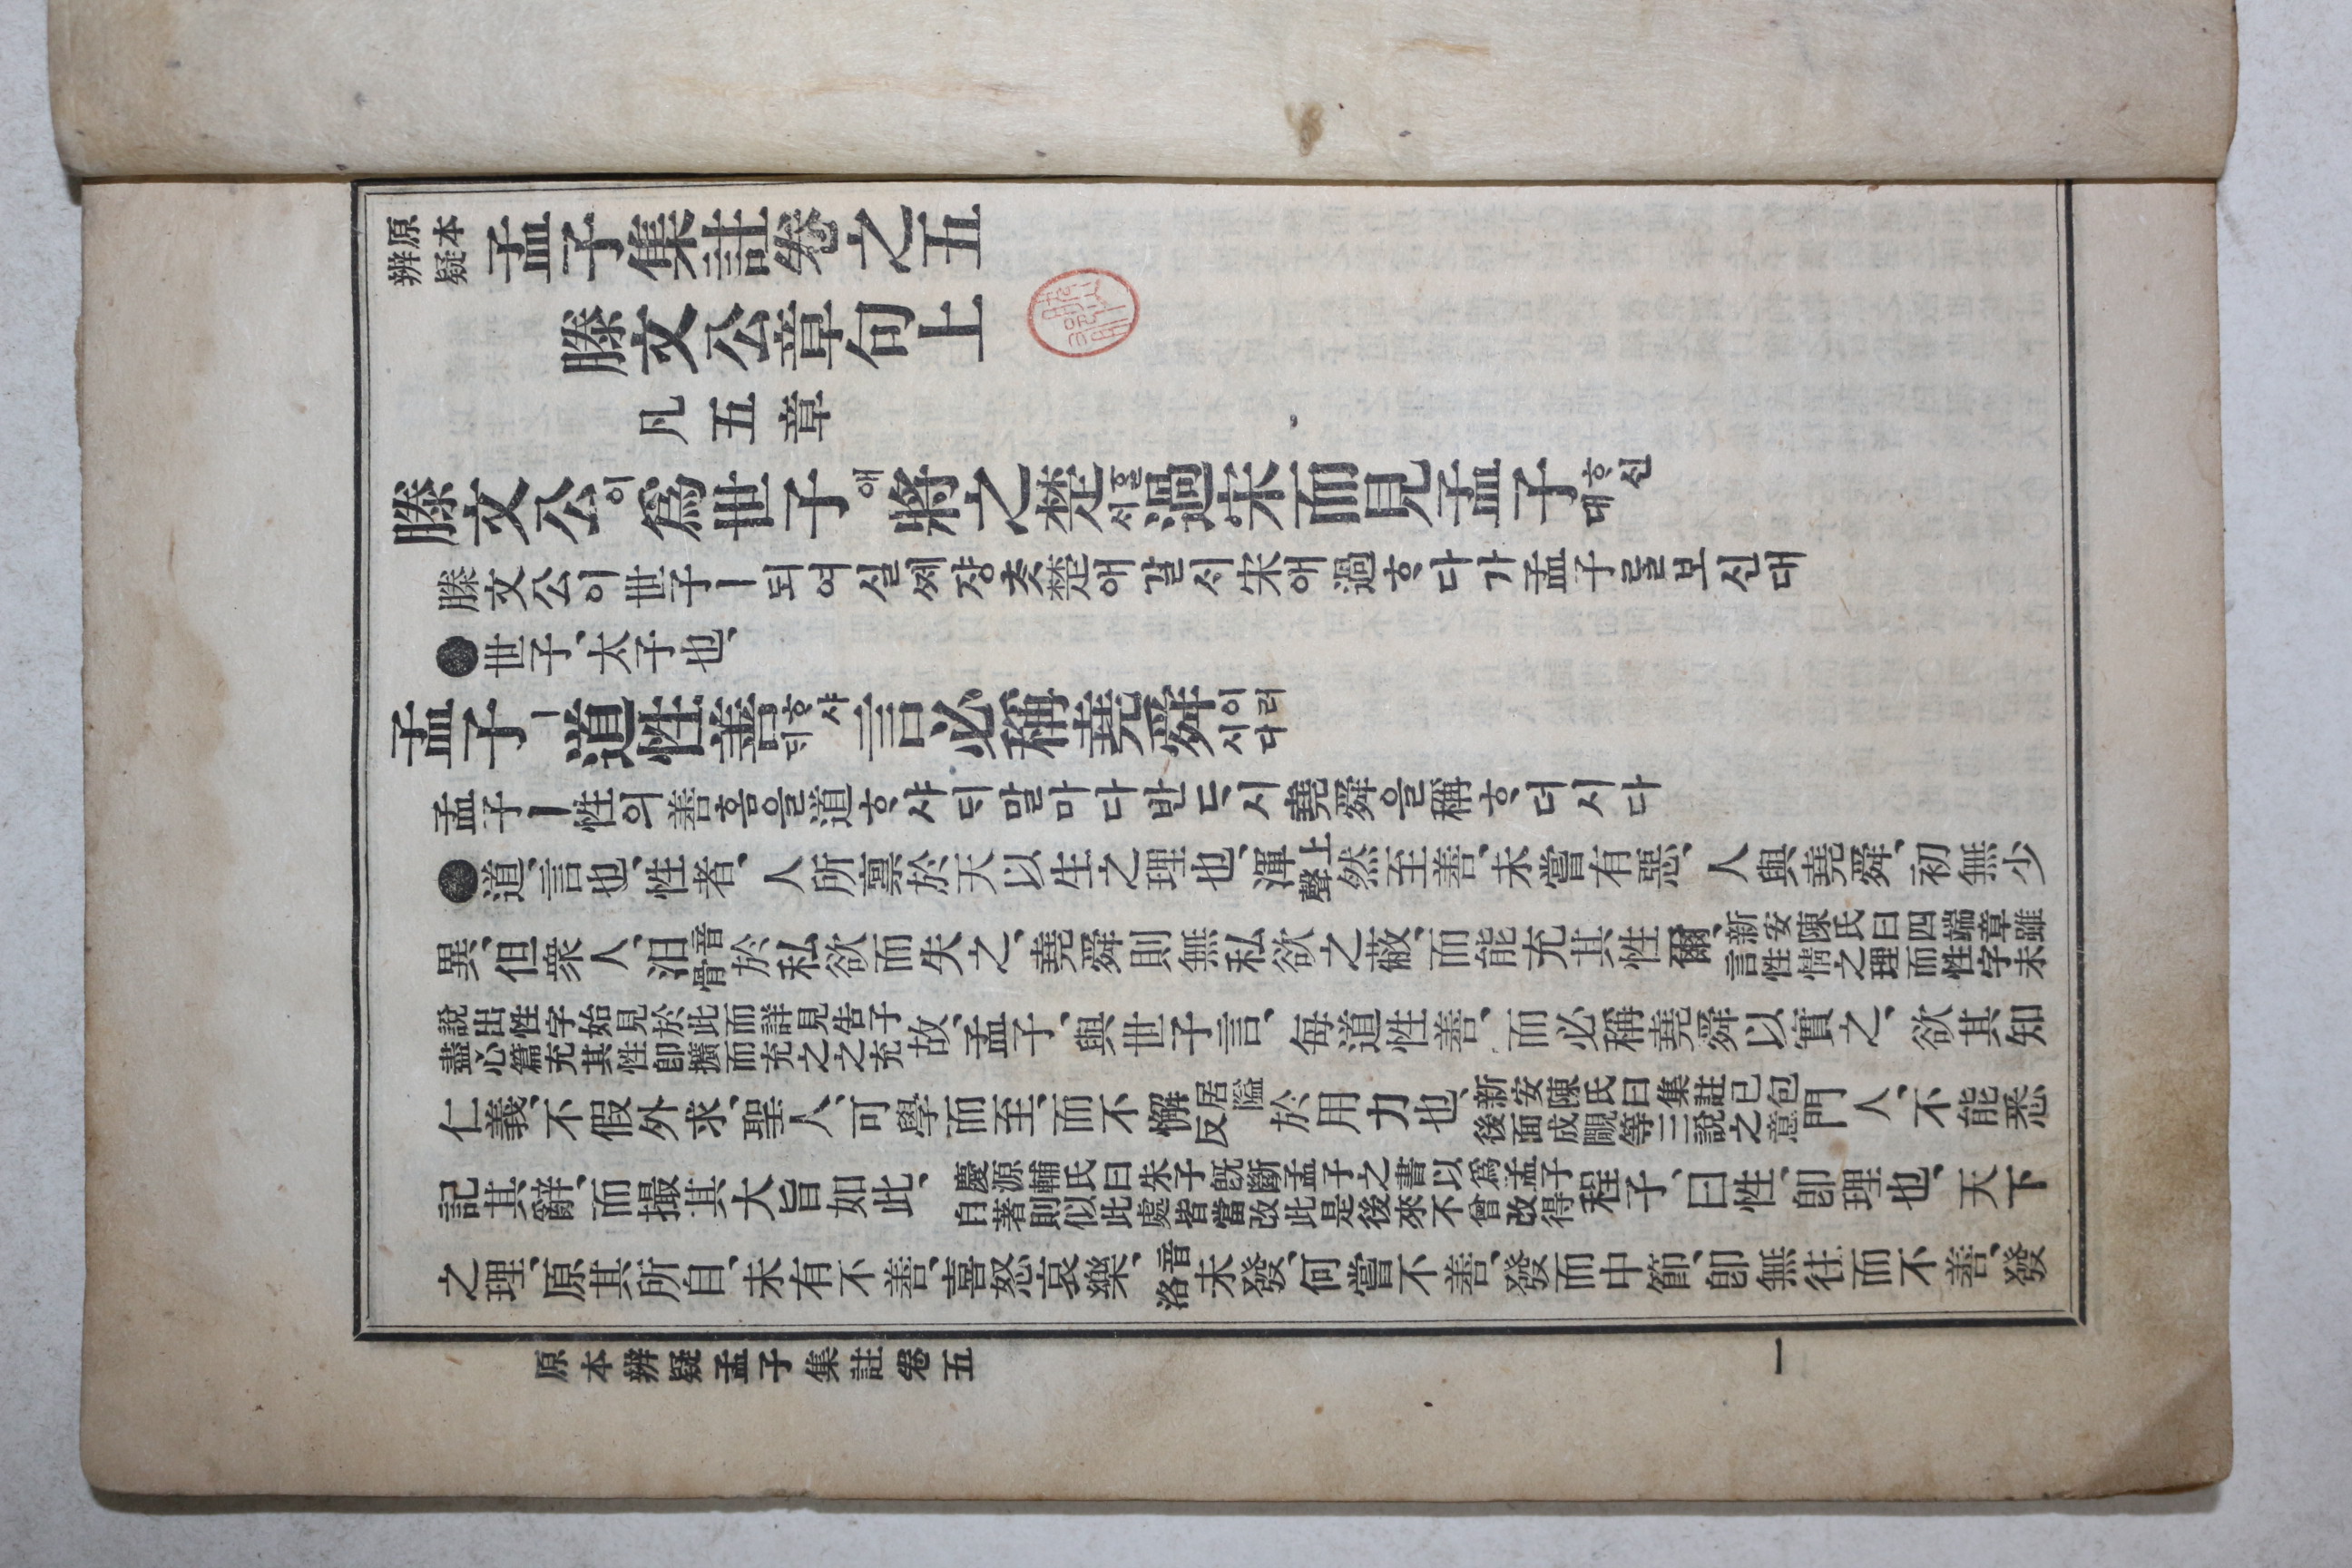 原本辨疑 孟子集註卷之五
滕文公章句上
凡五章
滕文公이爲世子애將之楚ᄒᆞᆯ서過宋而見孟子ᄒᆞ신대
滕文公이世子ㅣ되여실ᄶᅦ쟝ᄎᆞᆺ楚애갈ᄉᆡ宋애過ᄒᆞ다가孟子를보신대
●世子、太子也、
孟子ㅣ道性善ᄒᆞ샤ᄃᆡ言必稱堯舜이러시다
孟子ㅣ性의善홈을道ᄒᆞ샤ᄃᆡ말마다반ᄃᆞ시堯舜을稱ᄒᆞ더시다
●道、言也、性者、人所禀於天以生之理也、渾上聲然至善、未嘗有惡、人與堯舜、初無少
異、但衆人、汨音骨於私欲而失之、堯舜則無私欲之蔽、而能充其性爾、新安陳氏曰四端章雖言性情之理而性字未
說出性字始見於此而詳見告子盡心篇充其性卽擴而充之之充故、孟子、與世子言、每道性善、而必稱堯舜以實之、欲其知
仁義、不假外求、聖人、可學而至、而不懈居隘反於用力也、新安陳氏曰集註已包後面成覵等三說之意門人、不能悉
記其辭、而撮其大旨如此、慶源輔氏曰朱子旣斷孟子之書以爲孟子自著則似此處皆當改此是後來不曾改得程子、曰性、卽理也、天下
之理、原其所自、未有不善、喜怒哀樂、音洛未發、何嘗不善、發而中節、卽無往而不善、發
原本辨疑孟子集註卷五
一